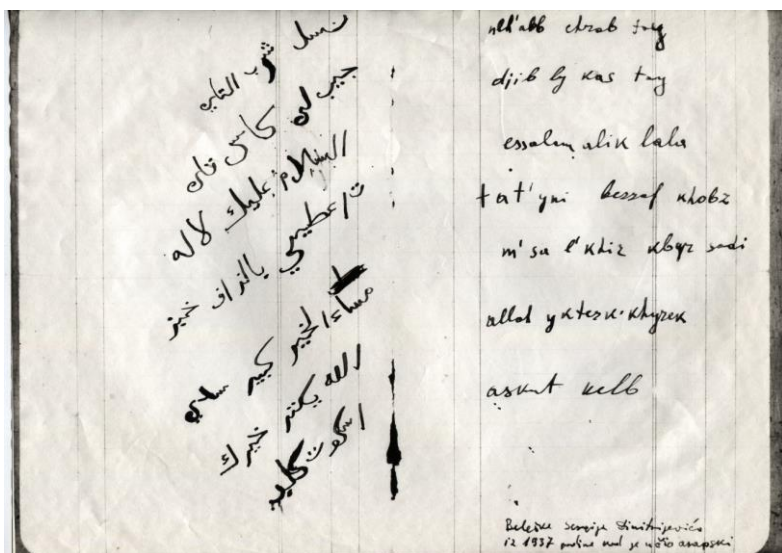 شرب التاي
جيب لي كاس تاي
السلام عليك لاله
تاعطيني بالزاف خبز
مساء الخير كبير سادي
الله يكتر خيرك
اسكوت كلب
chrab tay
djib ly kas tay
essalam alik lala
tat'yni bezzaf khobz
m'sa l'khir kbyr sadi
allah ykterk khyrek
askut kelb
Beleške Sergije Dimitrijevića
iz 1937 godine kad je učio arapski